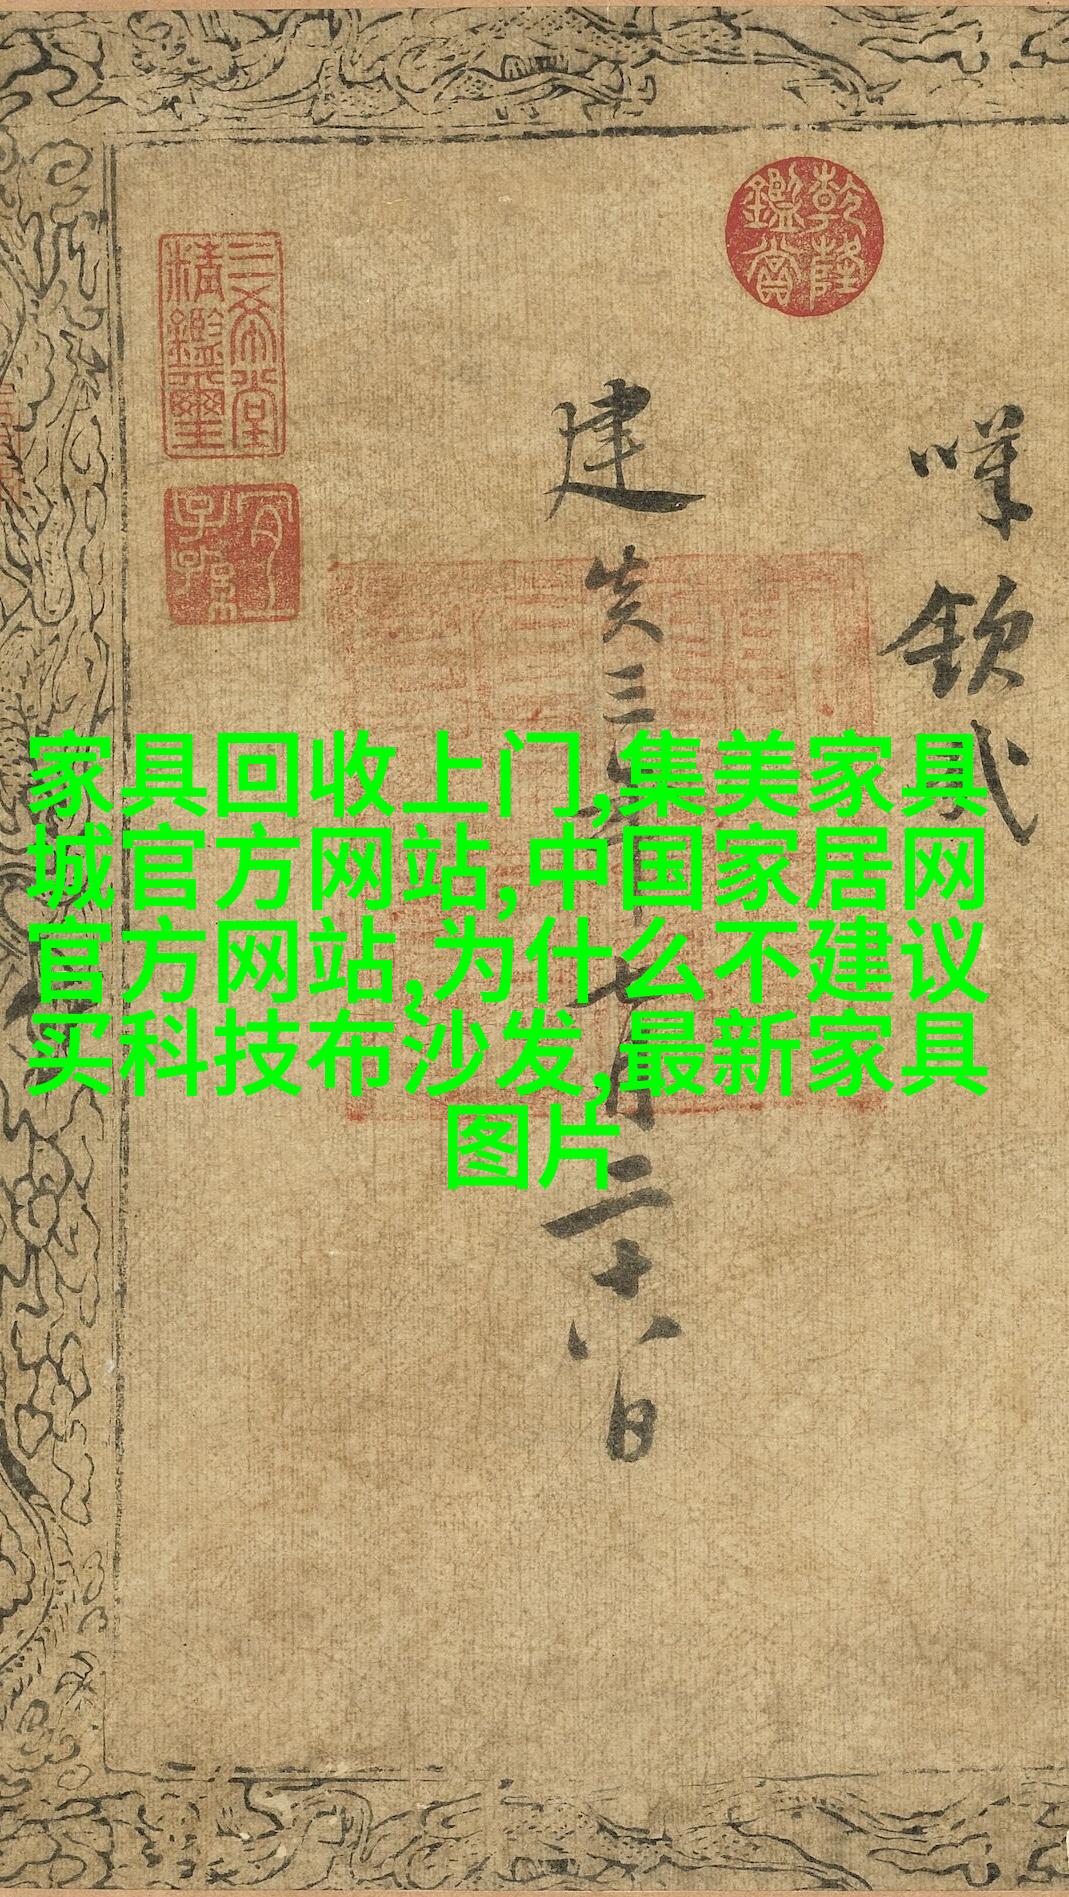 家具回收上门,集美家具
城官方网站,中国家居网
官方网站,为什么不建议
买科技布沙发,最新家具
图片
建炎三年七月二十八日
乾隆
鑑賞
三希堂
精鑑璽
宜
子孫